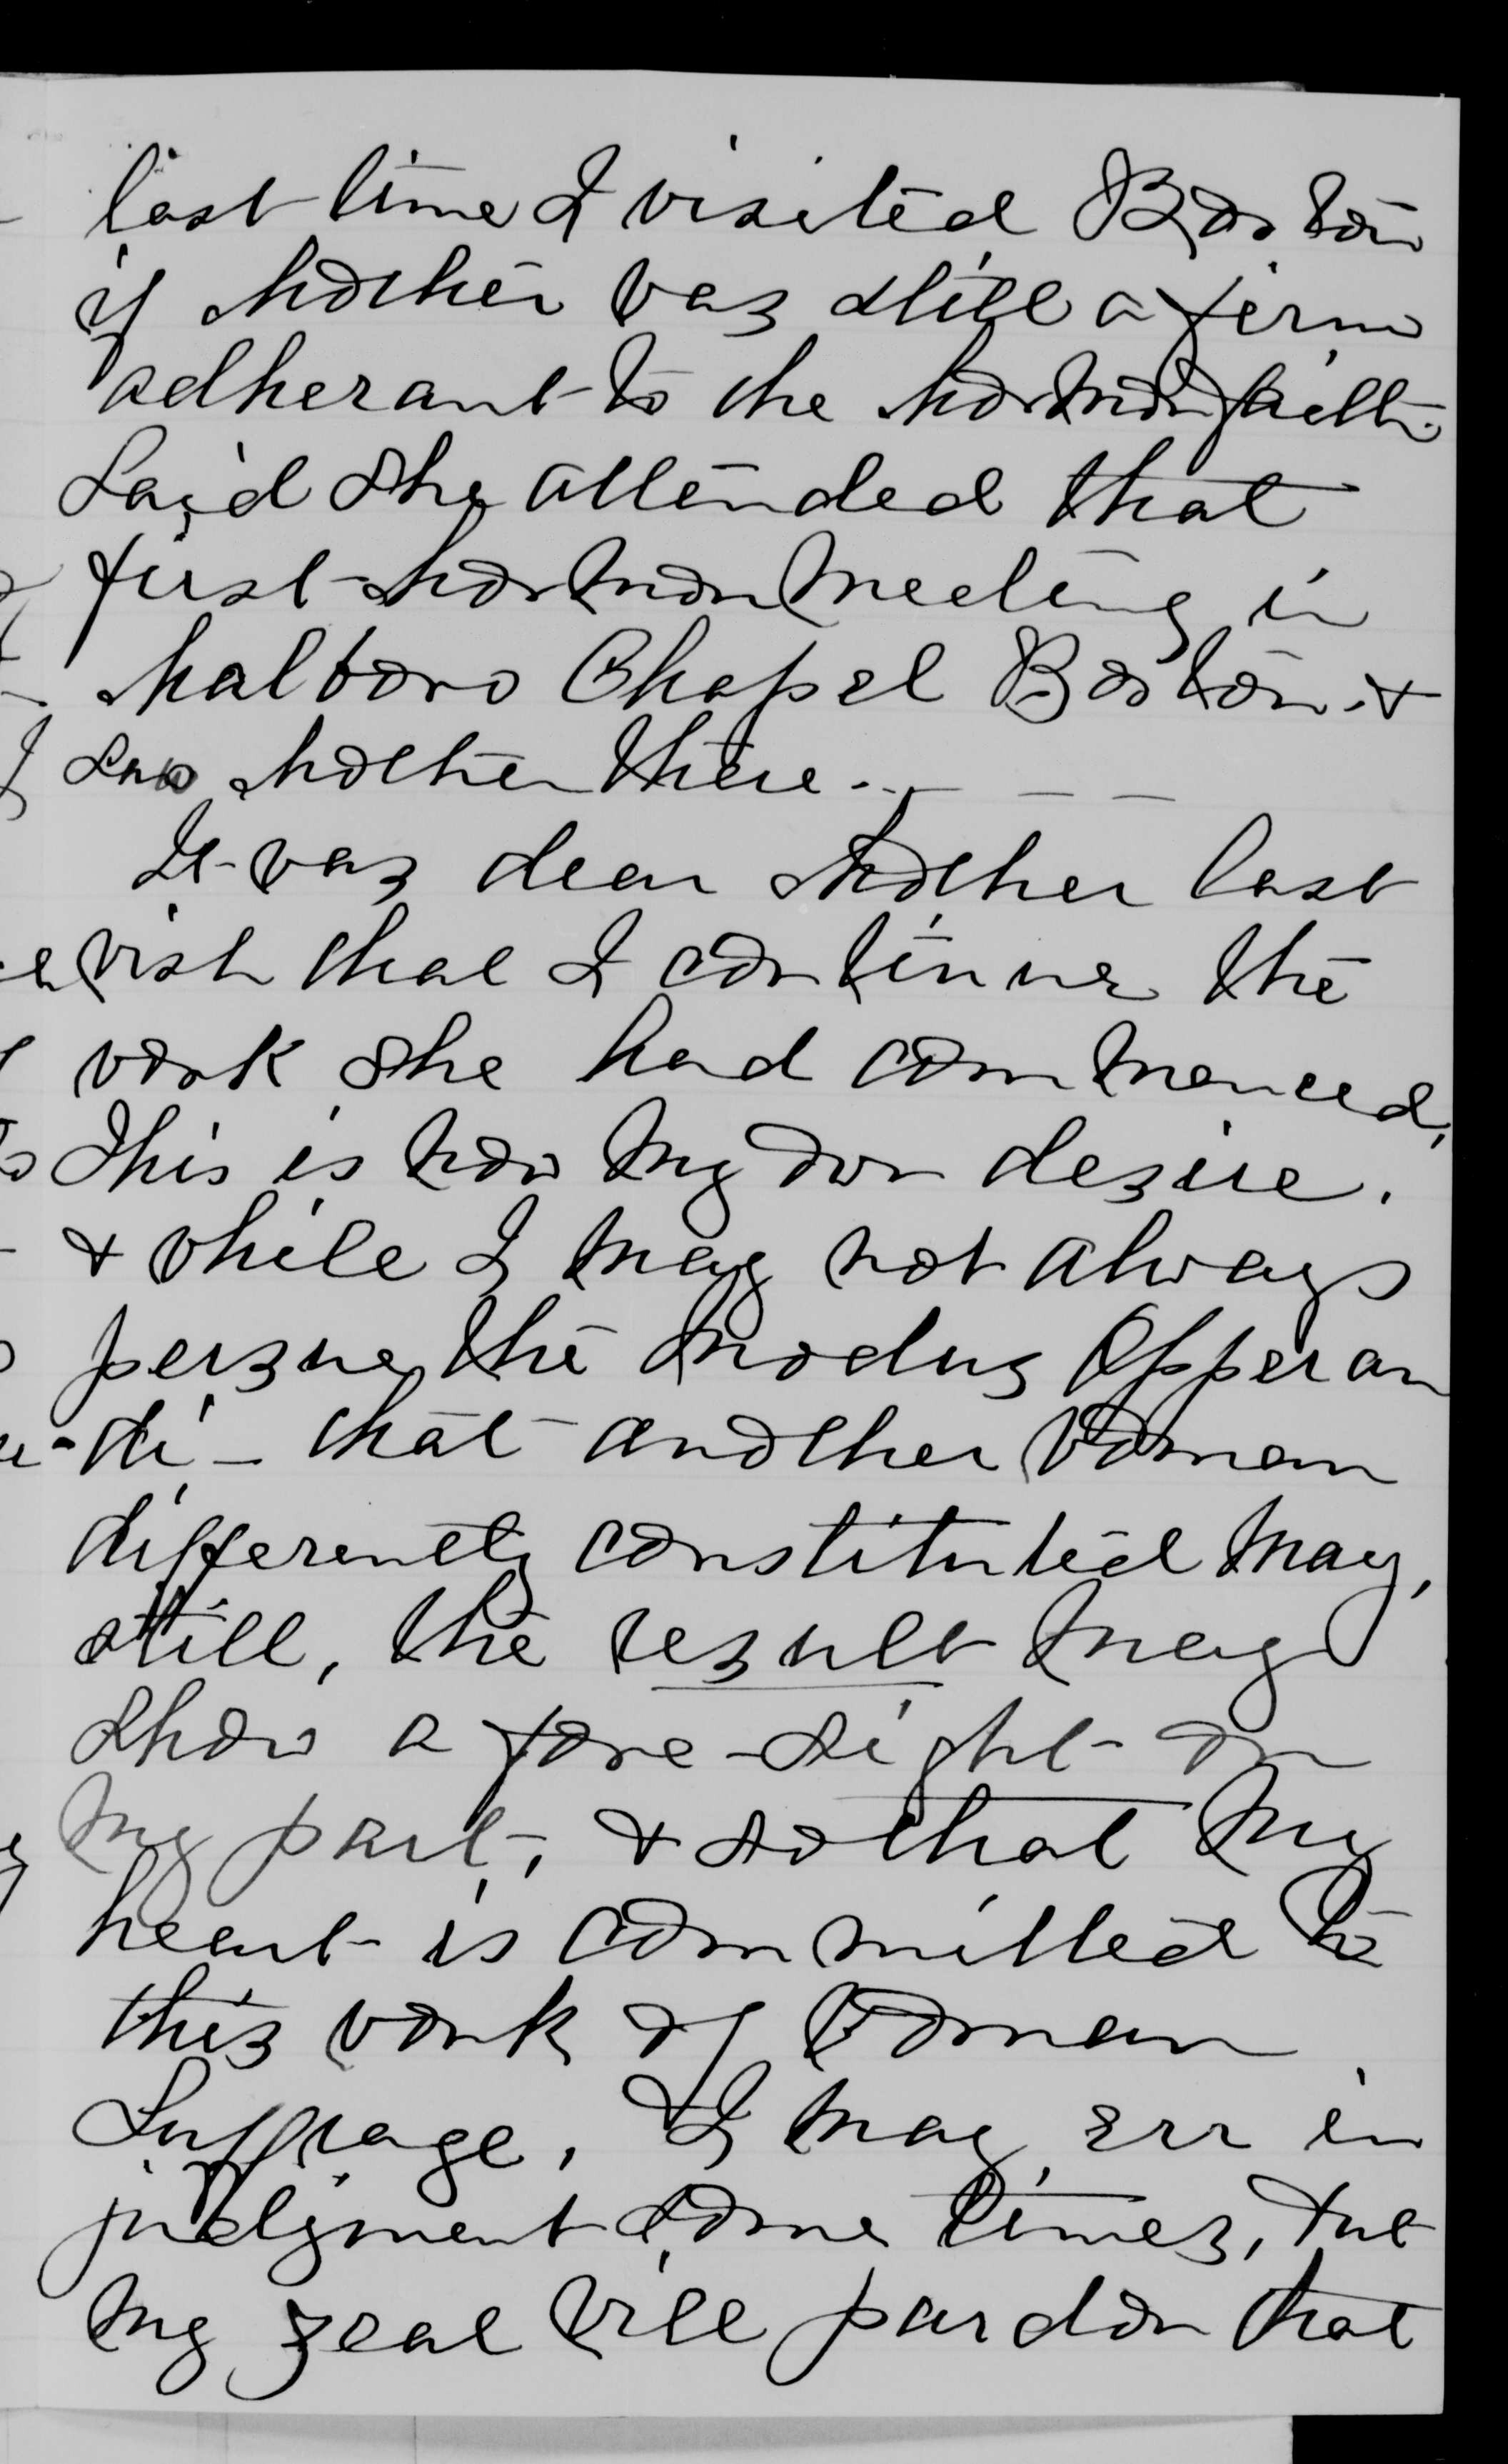 last time I visited Boston
if Mother was still a firm
adherant to the Mormon faith.
Said she attended that
first Mormon meeting in
Malboro Chapel Boston &
saw Mother there. - - -
It was dear Mother last
wish that I continue the
work she had commenced,
This is now my own desire.
& while I may not always
persue the modus opperan
- di - that another woman
differently constituted may,
still, the result may
show a fore-sight - on
my part, & so that my
heart is committed to
this work of Woman
Suffrage, I may err in
judgment some times, but
my zeal will pardon that